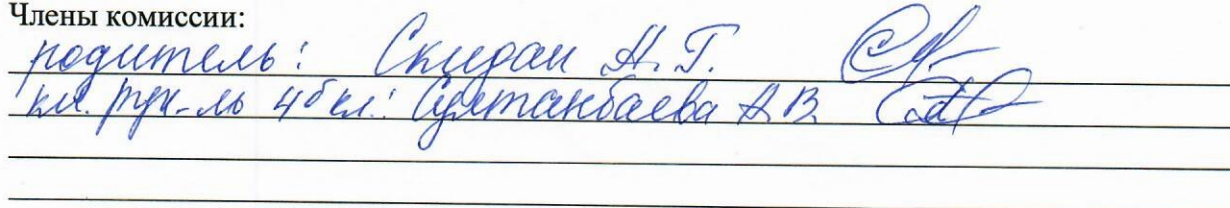 Члены комиссии:
родитель: Скидан А.Г.
кл. рук-ль 4б кл.: Султанбаева А.В.